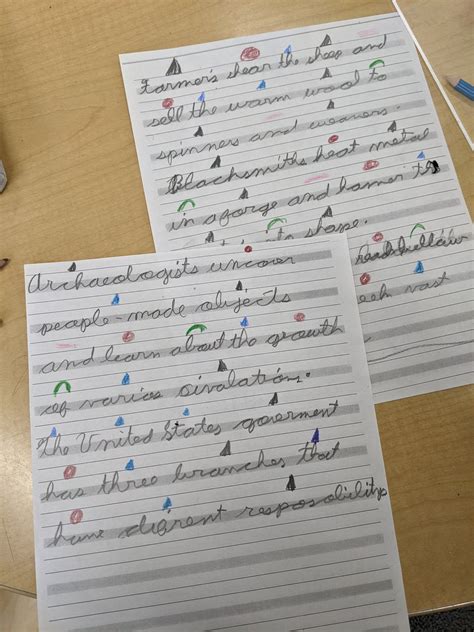 Farmers shear the sheep and
sell the warm wool to
spinners and weavers.
Blacksmiths heat metal
in a forge and hamer th
into shape.
vast
Archaeologists uncover
people-made objects
and learn about the growth
of varios civalations.
The United States goverment
has three branches that
have diffrent resposobilitys